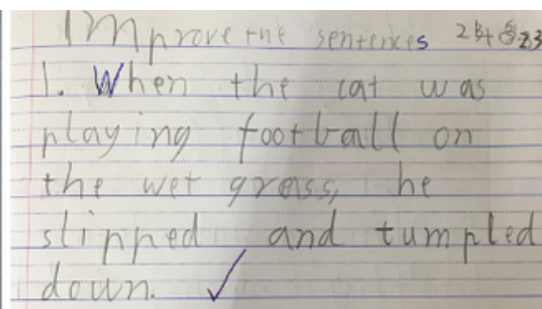 Improve the sentences
1. When the cat was
playing football on
the wet grass, he
slipped and tumpled
down.